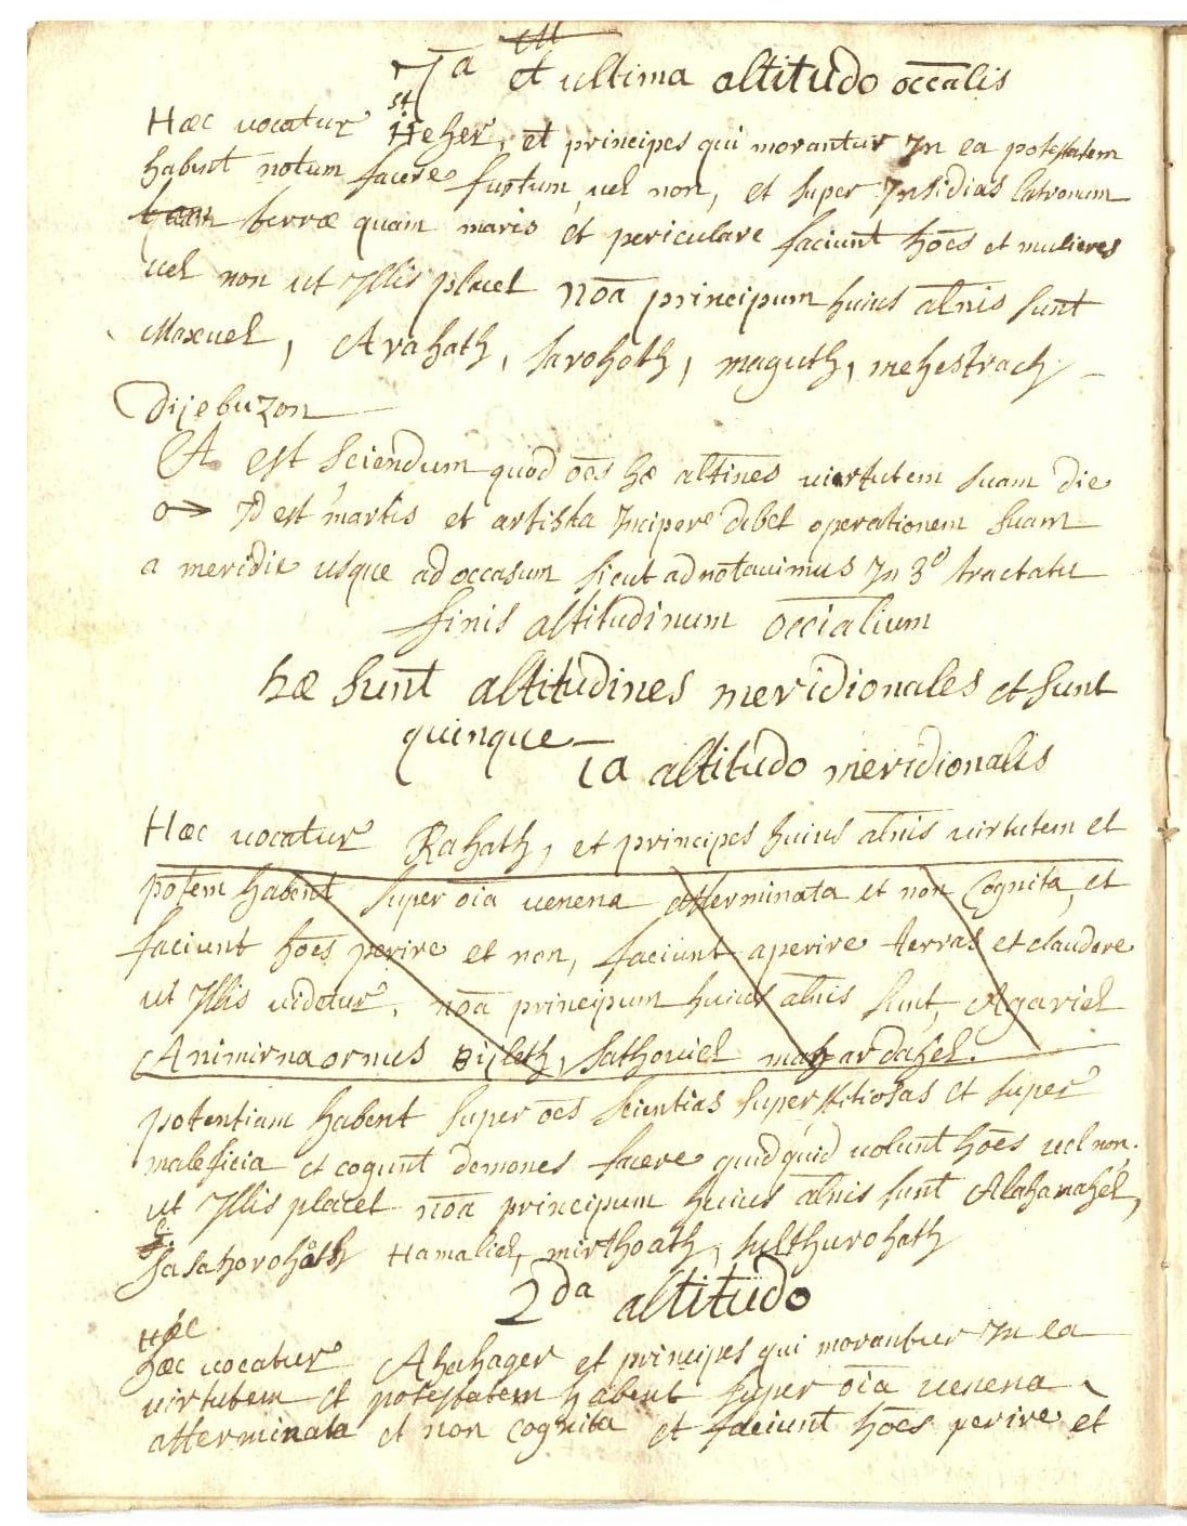 7a et ultima altitudo occālis
Hæc uocatur Heher, et principes qui morantur Jn ea potestatem
habent notum facere furtum, uel non, et super Jnsidias latronum
terræ quam maris et periculare faciunt hōes et mulieres
uel non ut Jllis placet nōa principum huius altnis sunt
Maxuel, Arahath, sarohoth, maguth, mehestrach
Dijebuzon
A est sciendum quod oēs hæ altines uirtutem suam die
Jd est martis et artista Jncipere debet operationem suam
a meridie usque ad occasum sicut adnotauimus Jn 3º tractatu
finis altitudinum occialium
hæ sunt altitudines meridionales et sunt
quinque
1a altitudo meridionalis
Hæc uocatur Rahath, et principes huius altnis uirtutem et
potem habent super oīa uenena atterminata et non Cognita, et
faciunt hōes perire et non, faciunt aperire terras et claudere
ut Jllis uidetur, nōa principum huius altnis sunt, Agariel
Animirnaormus Bijleth, sathouiel mahardahel.
potentiam habent super oēs scientias superstitiosas et super
maleficia et cogunt demones facere quidquid uolunt hōes uel non.
ut Jllis placet nōa principum huius altnis sunt Alahanahel,
sasahorohath Hamaliel, mirthoath, sulthurohath
2da altitudo
Hæc
hæc uocatur Ahahager et principes qui morantur Jn ea
uirtutem et potestatem habent super oīa uenena
atterminata et non cognita et faciunt hōes perire et